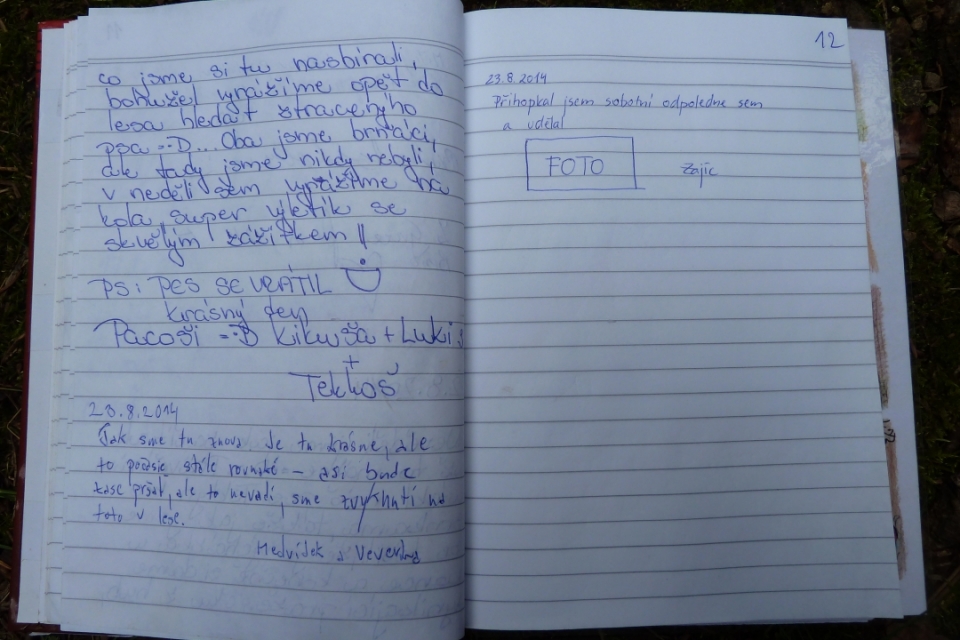 co jsme si tu nasbírali,
bohužel vyrážíme opět do
lesa hledat ztraceného
psa =:D... Oba jsme brňáci,
ale tady jsme nikdy nebyli,
v neděli sem vyrážíme na
kola, super výletík se
skvělým zážitkem!!
PS: PES SE VRÁTIL
krásný den
Pacoši =:D Kikuša + Luki
+
Tekkoš
23.8.2014
Tak sme tu znova. Je tu krásne, ale
to počasie stále rovnaké – asi bude
zase pršať, ale to nevadí, sme zvyknutí na
toto v lese.
Medvídek a
12
23.8.2014
Přihopkal jsem sobotní odpoledne sem
a udělal
FOTO
Zajíc